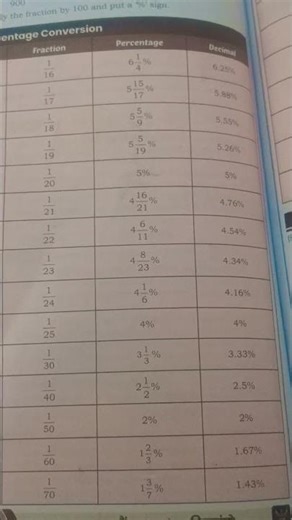 600
fy the fraction by 100 and put a '%' sign.
centage Conversion
Fraction Percentage Decimal
1/16 6 1/4% 6.25%
1/17 5 15/17% 5.88%
1/18 5 5/9% 5.55%
1/19 5 5/19% 5.26%
1/20 5% 5%
1/21 4 16/21% 4.76%
1/22 4 6/11% 4.54%
1/23 4 8/23% 4.34%
1/24 4 1/6% 4.16%
1/25 4% 4%
1/30 3 1/3% 3.33%
1/40 2 1/2% 2.5%
1/50 2% 2%
1/60 1 2/3% 1.67%
1/70 1 3/7% 1.43%